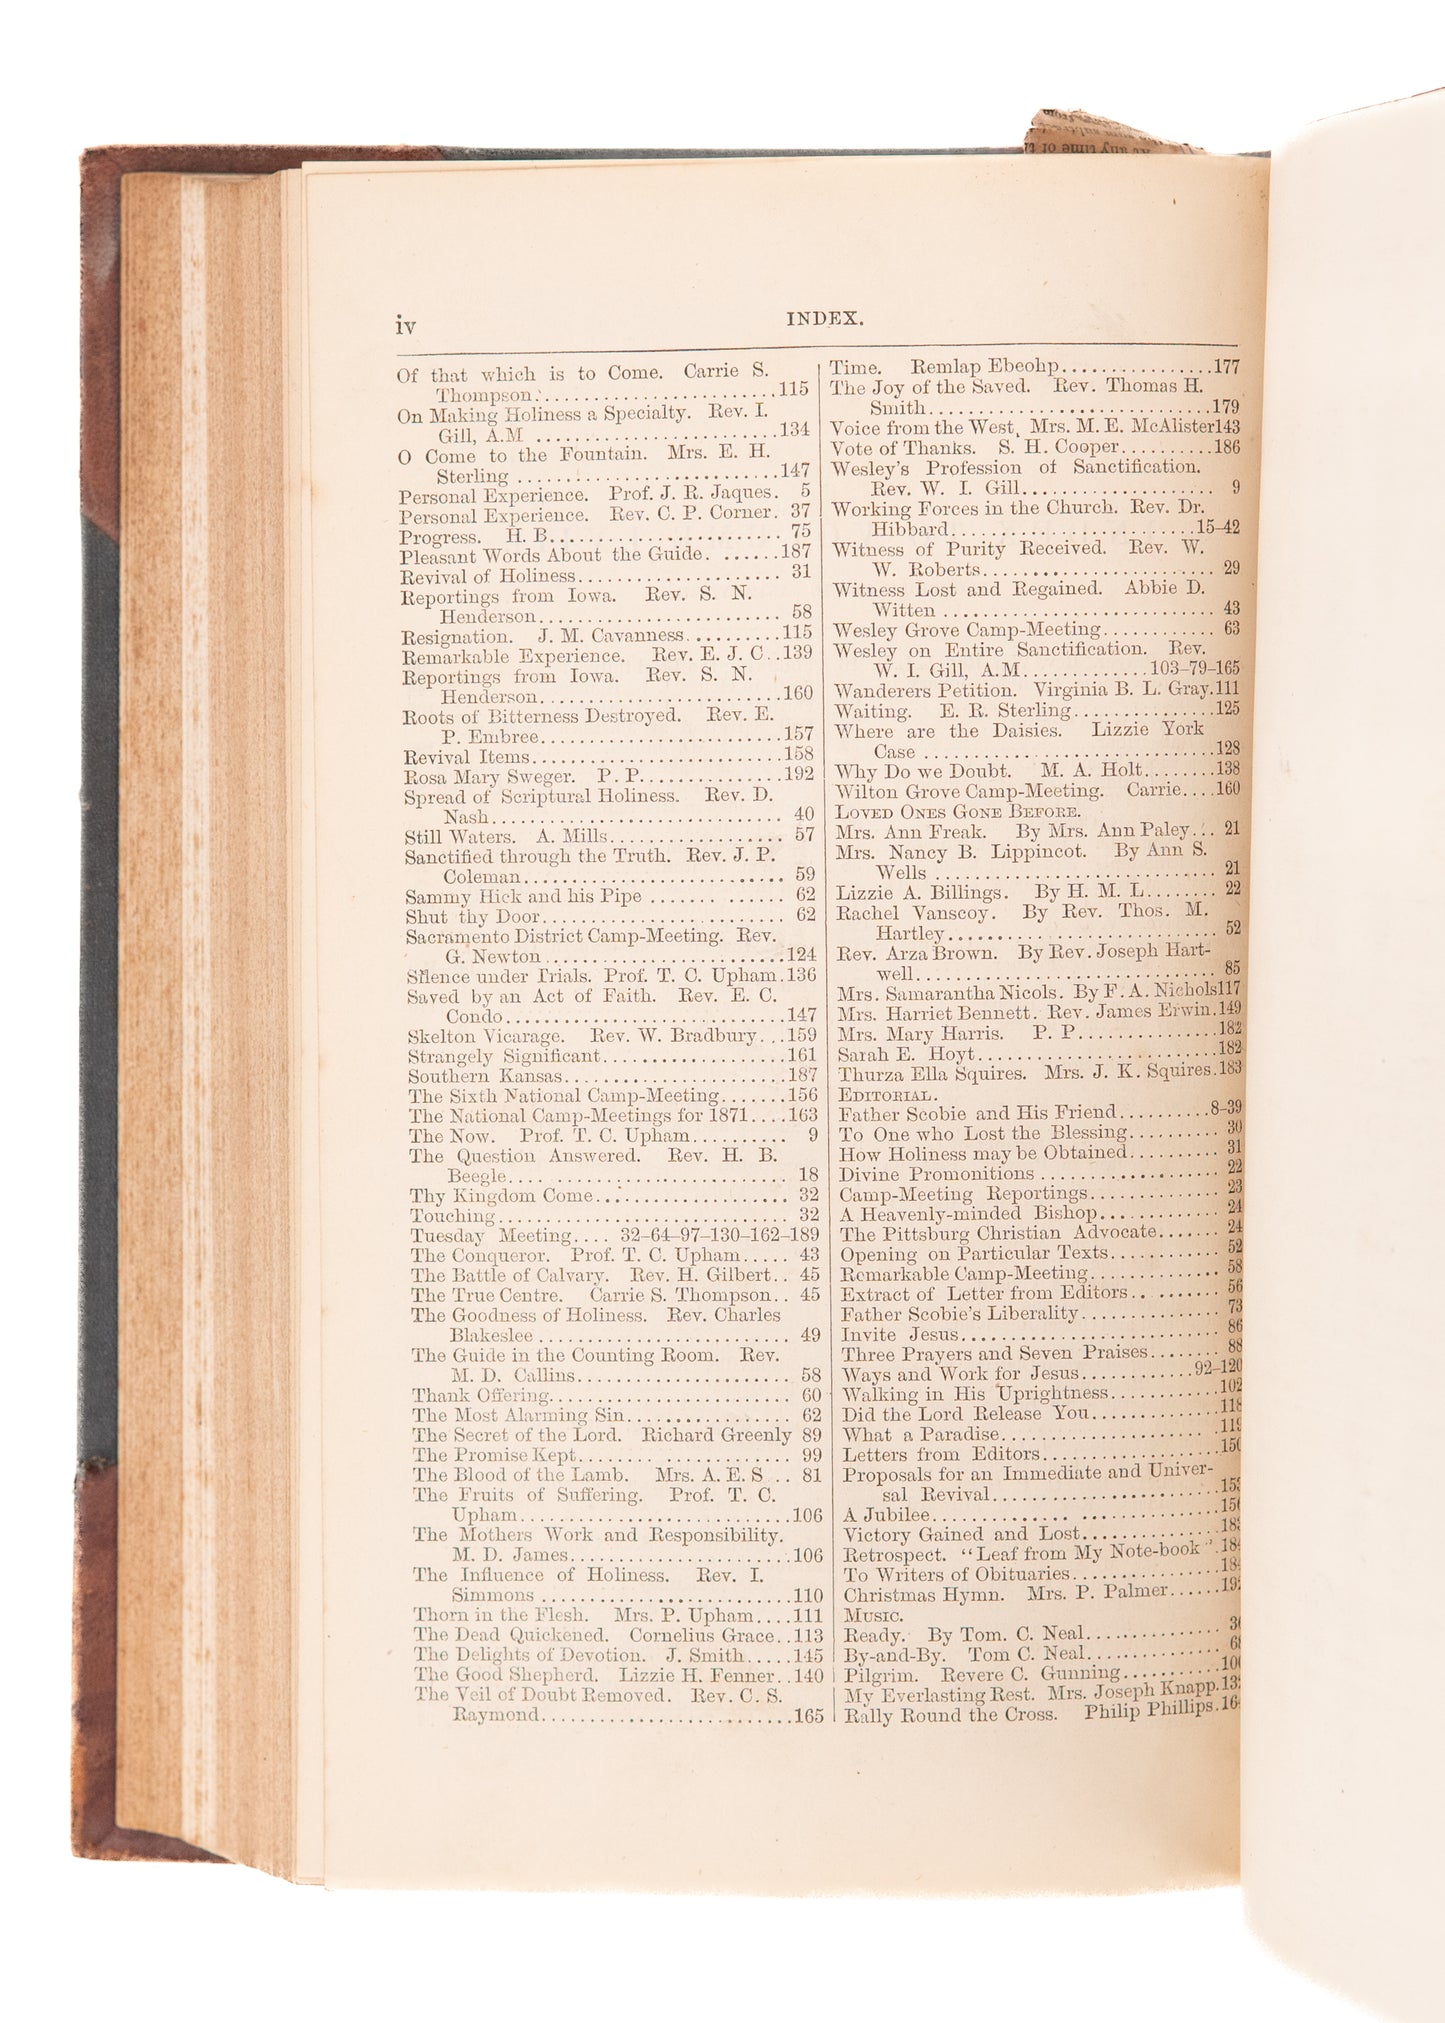 iv
INDEX.
Of that which is to Come. Carrie S.
Thompson.........................115
On Making Holiness a Specialty. Rev. I.
Gill, A.M .........................134
O Come to the Fountain. Mrs. E. H.
Sterling ...........................147
Personal Experience. Prof. J. R. Jaques. 5
Personal Experience. Rev. C. P. Corner. 37
Progress. H. B........................ 75
Pleasant Words About the Guide. .......187
Revival of Holiness..................... 31
Reportings from Iowa. Rev. S. N.
Henderson......................... 58
Resignation. J. M. Cavanness..........115
Remarkable Experience. Rev. E. J. C..139
Reportings from Iowa. Rev. S. N.
Henderson.........................160
Roots of Bitterness Destroyed. Rev. E.
P. Embree.........................157
Revival Items..........................158
Rosa Mary Sweger. P. P...............192
Spread of Scriptural Holiness. Rev. D.
Nash.............................. 40
Still Waters. A. Mills.................. 57
Sanctified through the Truth. Rev. J. P.
Coleman........................... 59
Sammy Hick and his Pipe ............. 62
Shut thy Door......................... 62
Sacramento District Camp-Meeting. Rev.
G. Newton.........................124
Silence under Trials. Prof. T. C. Upham.136
Saved by an Act of Faith. Rev. E. C.
Condo.............................147
Skelton Vicarage. Rev. W. Bradbury...159
Strangely Significant...................161
Southern Kansas.......................187
The Sixth National Camp-Meeting.......156
The National Camp-Meetings for 1871....163
The Now. Prof. T. C. Upham.......... 9
The Question Answered. Rev. H. B.
Beegle............................ 18
Thy Kingdom Come.................... 32
Touching.............................. 32
Tuesday Meeting.... 32-64-97-130-162-189
The Conqueror. Prof. T. C. Upham..... 43
The Battle of Calvary. Rev. H. Gilbert.. 45
The True Centre. Carrie S. Thompson.. 45
The Goodness of Holiness. Rev. Charles
Blakeslee ......................... 49
The Guide in the Counting Room. Rev.
M. D. Callins...................... 58
Thank Offering......................... 60
The Most Alarming Sin................. 62
The Secret of the Lord. Richard Greenly 89
The Promise Kept..................... 99
The Blood of the Lamb. Mrs. A. E. S .. 81
The Fruits of Suffering. Prof. T. C.
Upham............................106
The Mothers Work and Responsibility.
M. D. James.......................106
The Influence of Holiness. Rev. I.
Simmons ..........................110
Thorn in the Flesh. Mrs. P. Upham....111
The Dead Quickened. Cornelius Grace..113
The Delights of Devotion. J. Smith.....145
The Good Shepherd. Lizzie H. Fenner..140
The Veil of Doubt Removed. Rev. C. S.
Raymond..........................165
Time. Remlap Ebeohp................177
The Joy of the Saved. Rev. Thomas H.
Smith.............................179
Voice from the West. Mrs. M. E. McAlister143
Vote of Thanks. S. H. Cooper..........186
Wesley's Profession of Sanctification.
Rev. W. I. Gill.................... 9
Working Forces in the Church. Rev. Dr.
Hibbard.........................15-42
Witness of Purity Received. Rev. W.
W. Roberts........................ 29
Witness Lost and Regained. Abbie D.
Witten ............................ 43
Wesley Grove Camp-Meeting............ 63
Wesley on Entire Sanctification. Rev.
W. I. Gill, A.M.............103-79-165
Wanderers Petition. Virginia B. L. Gray.111
Waiting. E. R. Sterling...............125
Where are the Daisies. Lizzie York
Case ..............................128
Why Do we Doubt. M. A. Holt........138
Wilton Grove Camp-Meeting. Carrie....160
LOVED ONES GONE BEFORE.
Mrs. Ann Freak. By Mrs. Ann Paley... 21
Mrs. Nancy B. Lippincot. By Ann S.
Wells ............................. 21
Lizzie A. Billings. By H. M. L........ 22
Rachel Vanscoy. By Rev. Thos. M.
Hartley............................ 52
Rev. Arza Brown. By Rev. Joseph Hart-
well............................... 85
Mrs. Samarantha Nicols. By F. A. Nichols117
Mrs. Harriet Bennett. Rev. James Erwin.149
Mrs. Mary Harris. P. P...............182
Sarah E. Hoyt.........................182
Thurza Ella Squires. Mrs. J. K. Squires.183
EDITORIAL.
Father Scobie and His Friend..........8-39
To One who Lost the Blessing.......... 30
How Holiness may be Obtained.......... 31
Divine Promonitions ................... 22
Camp-Meeting Reportings.............. 23
A Heavenly-minded Bishop............. 24
The Pittsburg Christian Advocate....... 24
Opening on Particular Texts............ 52
Remarkable Camp-Meeting.............. 58
Extract of Letter from Editors.......... 56
Father Scobie's Liberality............... 73
Invite Jesus............................ 86
Three Prayers and Seven Praises........ 88
Ways and Work for Jesus............92-120
Walking in His Uprightness............102
Did the Lord Release You..............118
What a Paradise.......................
Letters from Editors...................
Proposals for an Immediate and Univer-
sal Revival........................
A Jubilee..............................
Victory Gained and Lost...............
Retrospect. "Leaf from My Note-book".
To Writers of Obituaries................
Christmas Hymn. Mrs. P. Palmer......
MUSIC.
Ready. By Tom. C. Neal...............
By-and-By. Tom C. Neal..............
Pilgrim. Revere C. Gunning...........
My Everlasting Rest. Mrs. Joseph Knapp.
Rally Round the Cross. Philip Phillips.